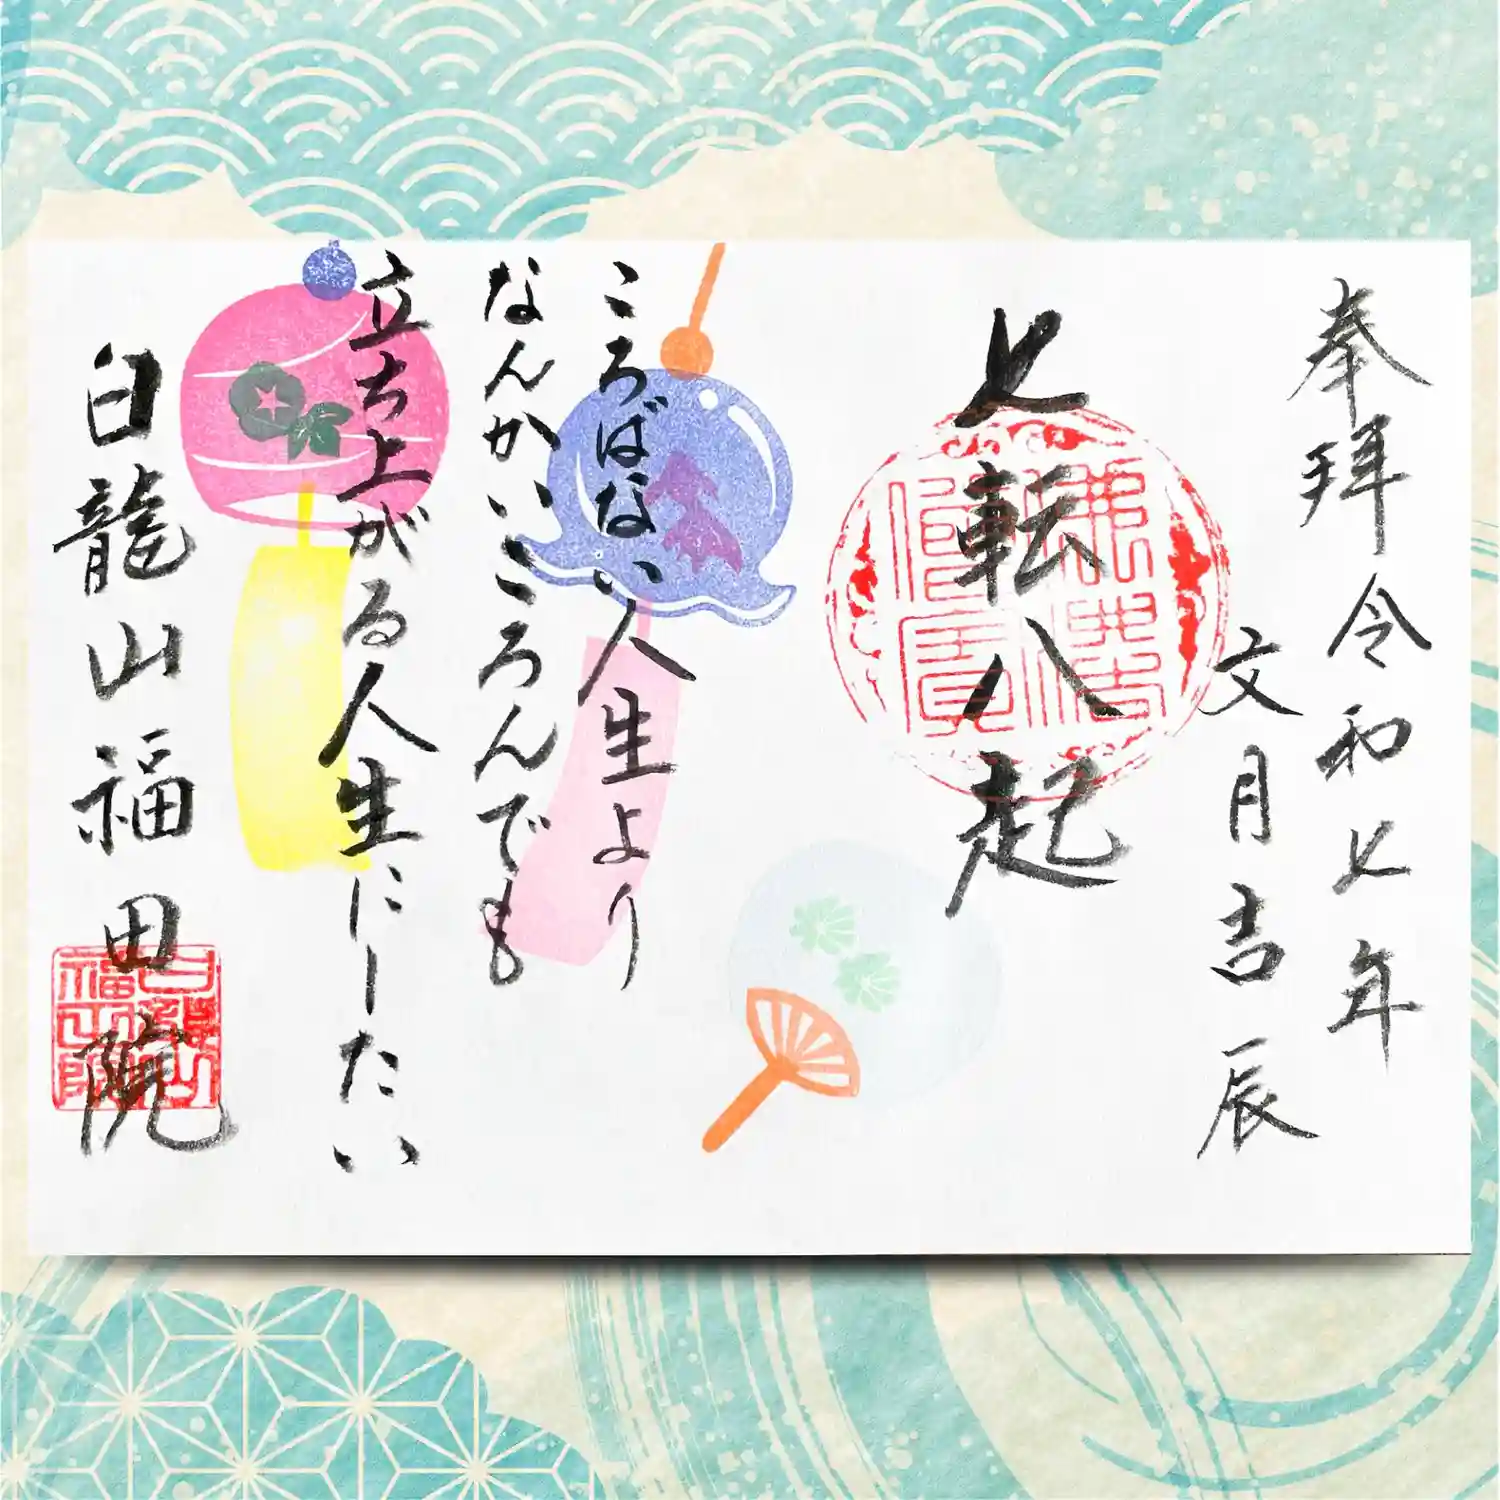 奉拝 令和七年
文月吉辰
七転八起
佛法僧寶
ころばない人生より
なんかいころんでも
立ち上がる人生にしたい
白龍山福田院
白龍山
福田院